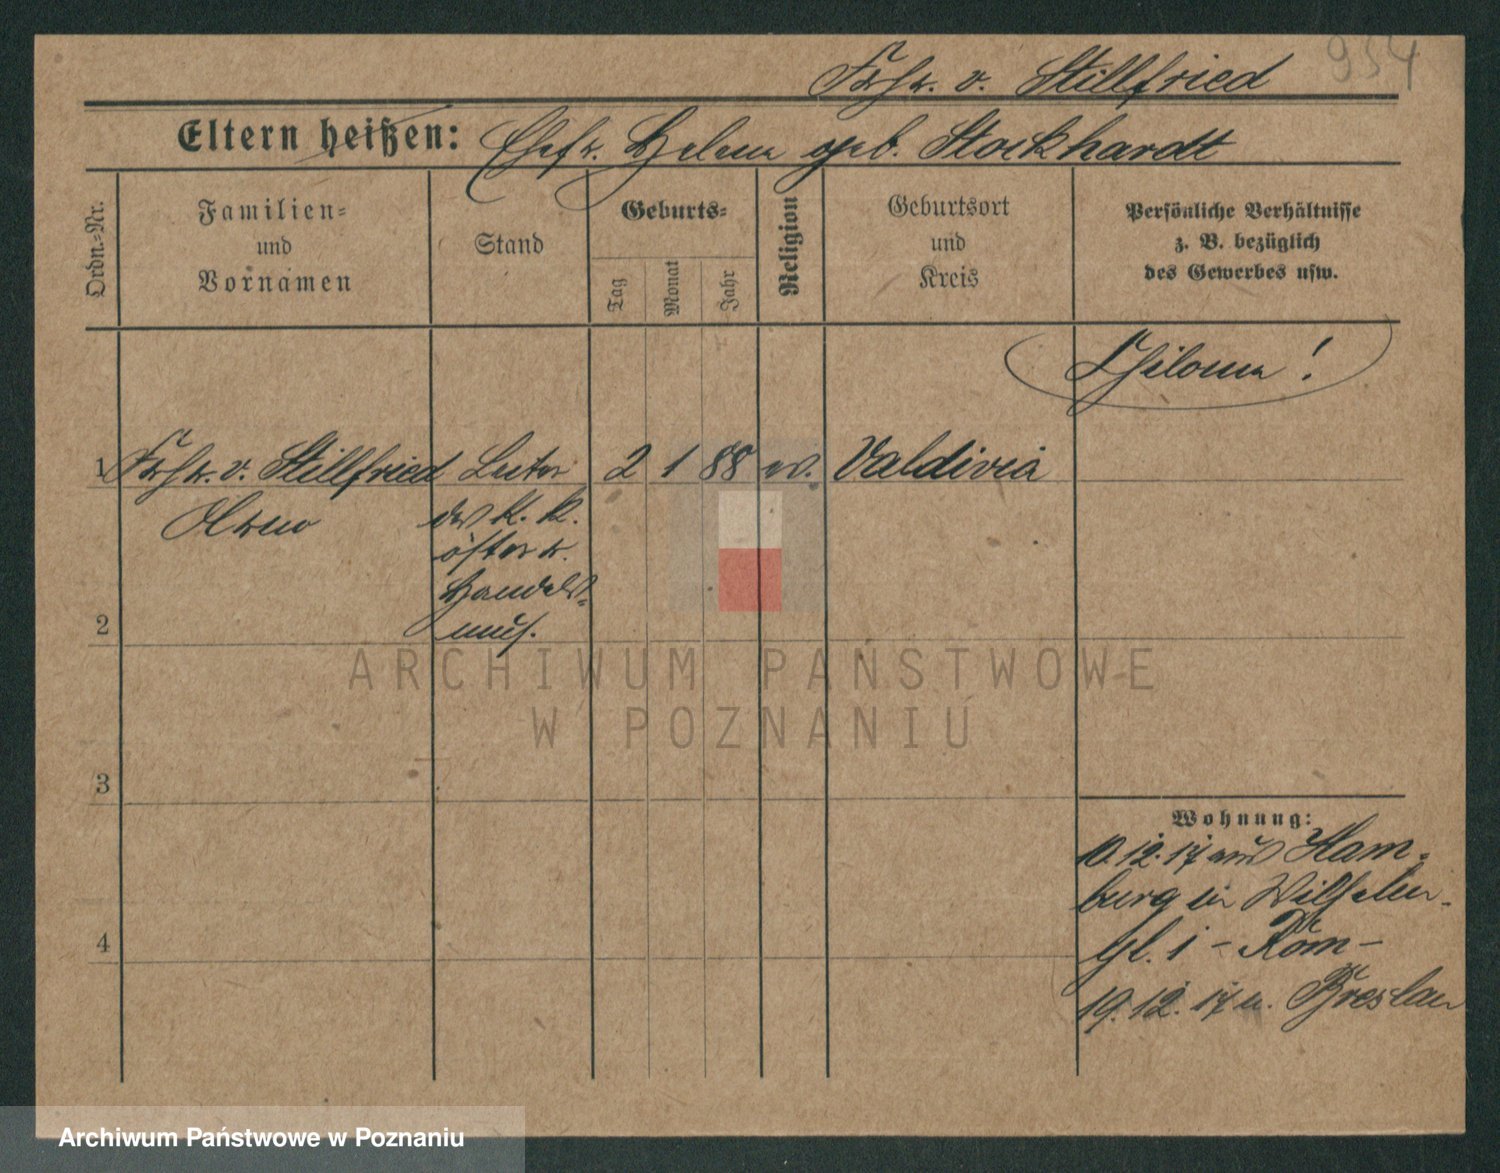 954
Frhr. v. Stillfried
Eltern heißen: Ehefr. Helene geb. Stockhardt
Ordn.-Nr.
Familien-
und
Vornamen
Stand
Geburts-
Tag
Monat
Jahr
Religion
Geburtsort
und
Kreis
Persönliche Verhältnisse
z. B. bezüglich
des Gewerbes usw.
1 Frhr. v. Stillfried Leiter 2 1 88 ev. Valdivia
des K. K.
österr.
Handels-
mus.
2
3
4
Wohnung:
10.12.17 aus Ham-
burg in Wilhelm-
pl. 1 - Röm -
19.12.17 n. Breslau
ARCHIWUM PAŃSTWOWE
W POZNANIU
Archiwum Państwowe w Poznaniu